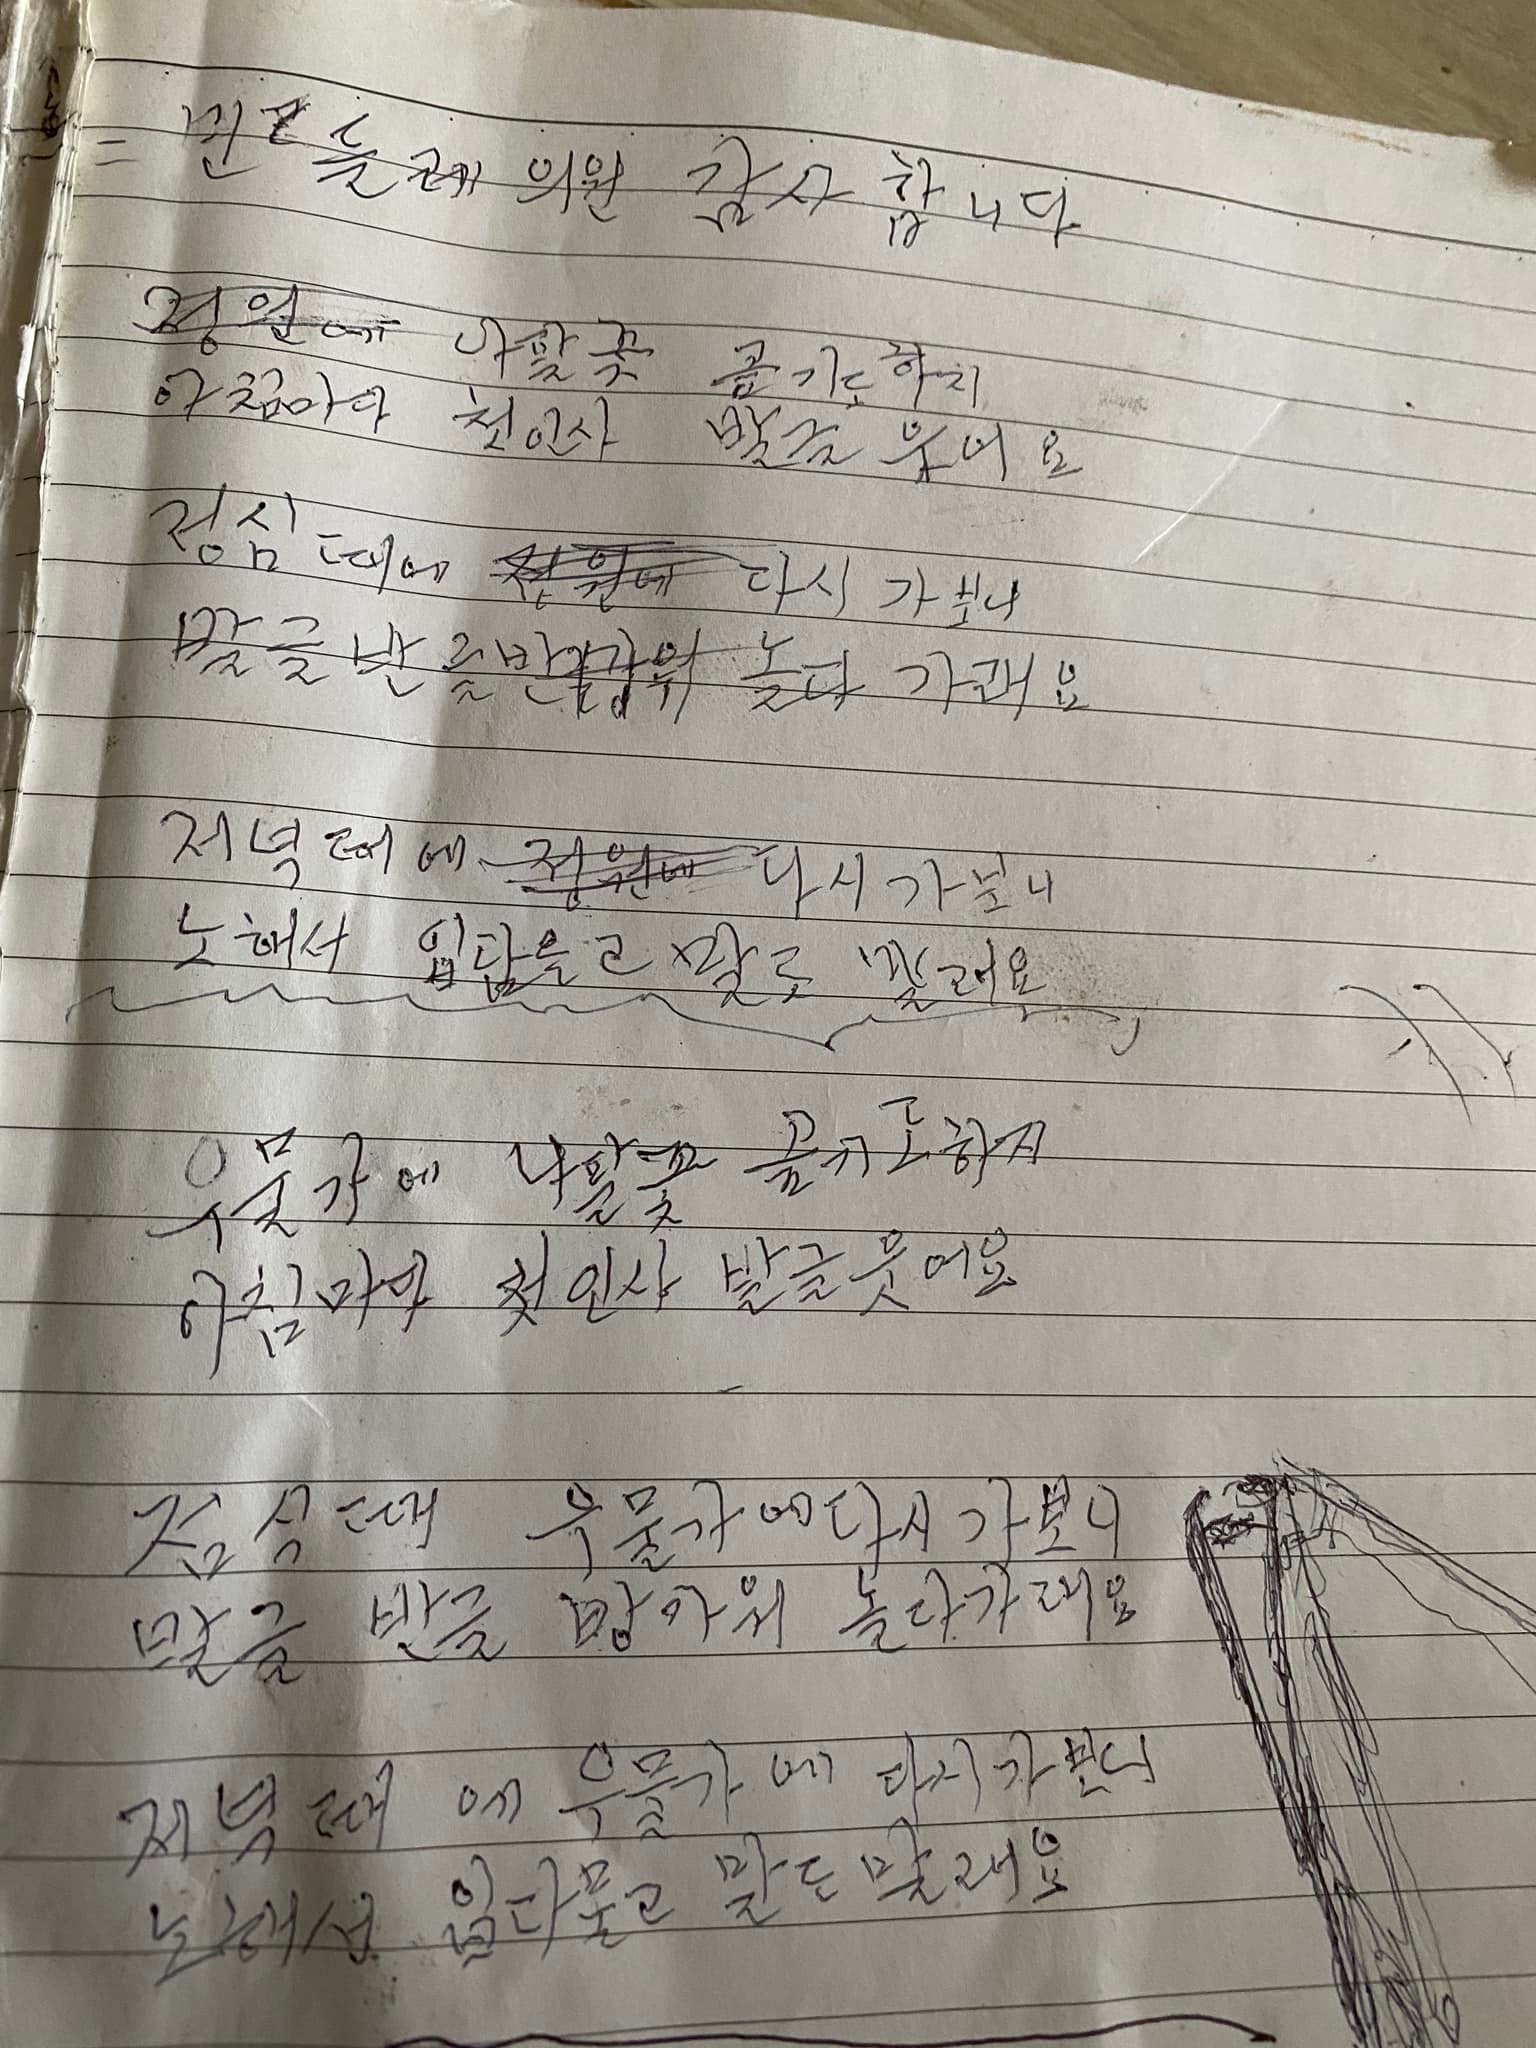 = 민들레 의원 감사 합니다
정원에 나팔꽃 곱기도하지
아침마다 첫인사 발글 웃어요
정심 때에 다시 가보니
발글 반글 반가워 놀다 가래요
저녁때에 정원에 다시 가보니
노해서 입담을고 말도 말래요
우물가에 나팔꽃 곱기도하지
아침마다 첫인사 발글웃어요
점심때 우물가에 다시가보니
발글 반글 방가워 놀다가래요
저녁때에 우물가에 다시가보니
노해서 입다물고 말도말래요